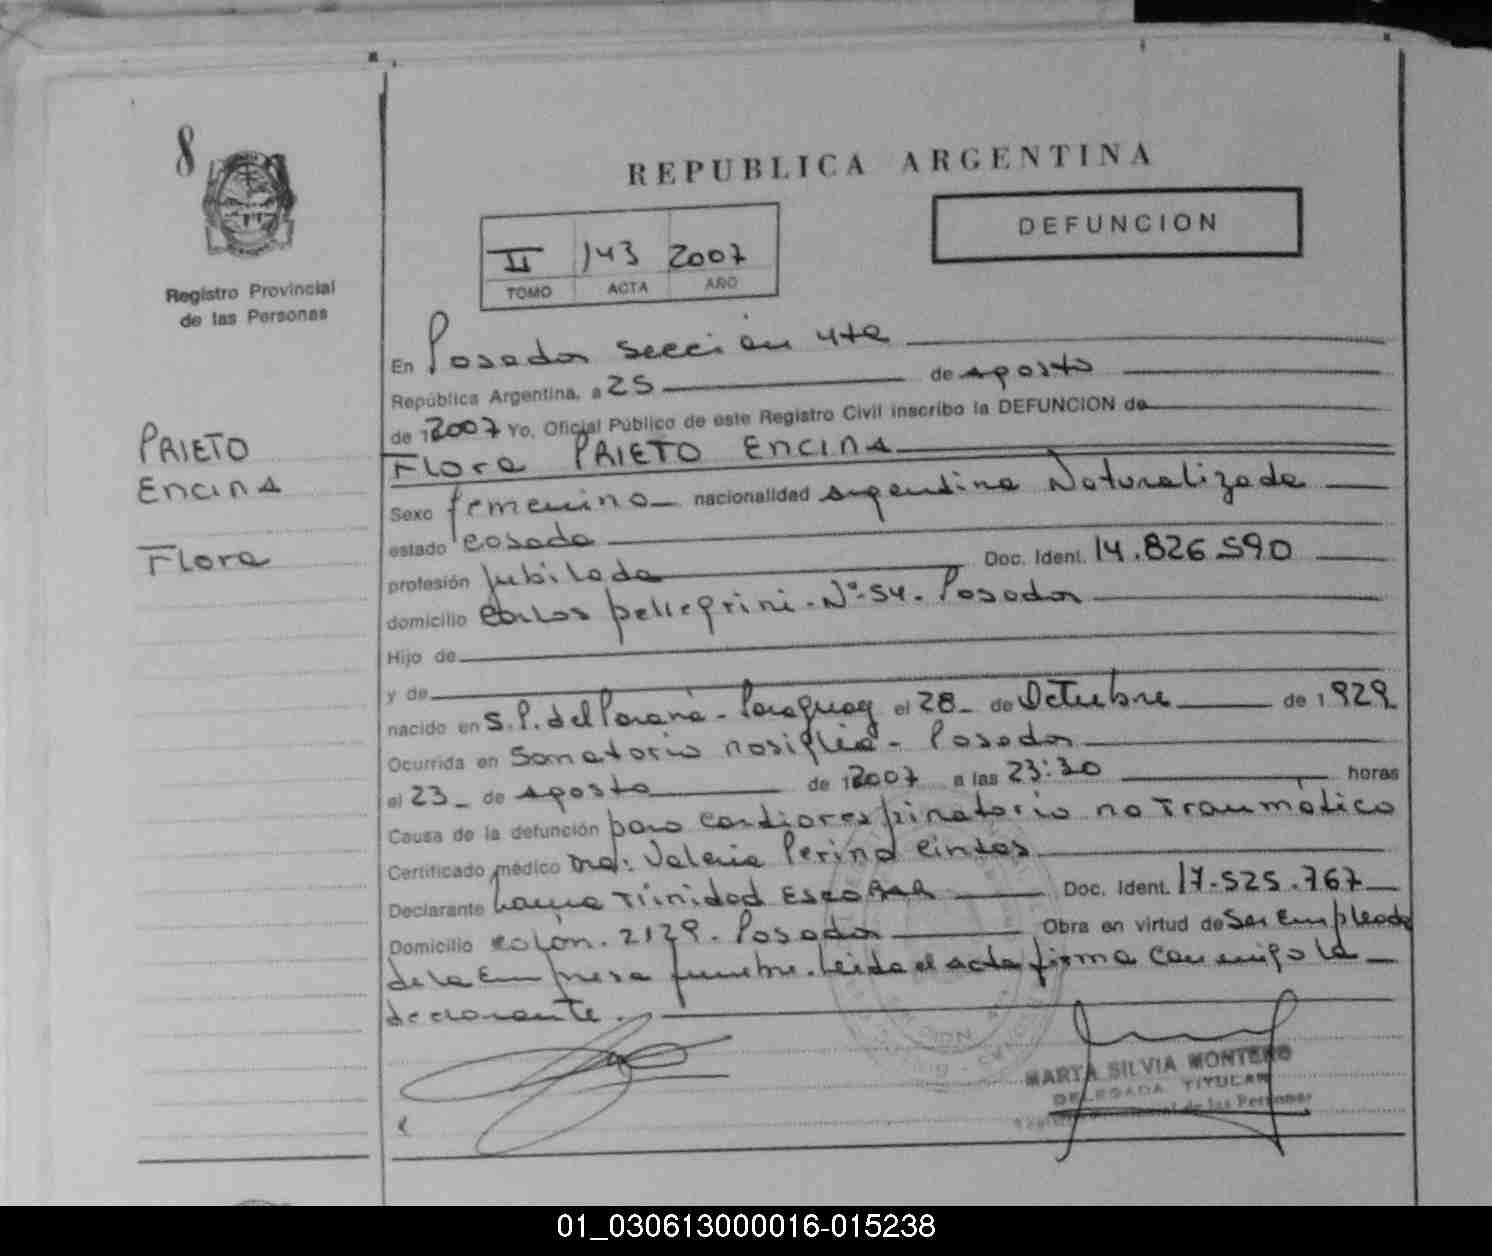 8
REPUBLICA ARGENTINA
DEFUNCION
II 143 2007
TOMO ACTA AÑO
Registro Provincial
de las Personas
En Posadas Sección 4ta
República Argentina, a 25 de agosto
de 1 2007 Yo, Oficial Público de este Registro Civil inscribo la DEFUNCION de
PRIETO
ENCINA
Flora
Flora PRIETO ENCINA
Sexo femenino nacionalidad argentina Naturalizada
estado casada
profesión Jubilada Doc. Ident. 14.826.590
domicilio Carlos pellegrini - Nº 54 - Posadas
Hijo de
y de
nacido en S.P. del Paraná - Paraguay el 28 de Octubre de 1 929
Ocurrida en Sanatorio nosiglia - Posadas
el 23 de agosto de 1 2007 a las 23:30 horas
Causa de la defunción paro cardiorespiratorio no Traumático
Certificado médico Dra: Valeria Perina
Declarante Trinidad ESCOBAR Doc. Ident. 17.525.767
Domicilio colón - 2129 - Posadas Obra en virtud de Ser Empleada
de la Empresa funebre. Leida el acta firma conmigo la
declarante.
MARTA SILVIA MONTERO
DELEGADA TITULAR
de las Personas
01_030613000016-015238